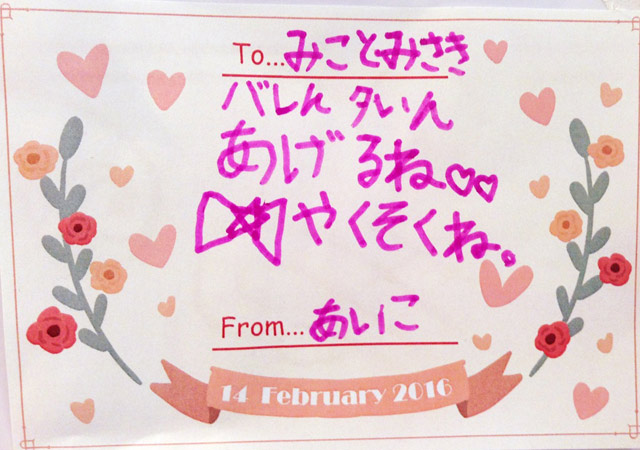 To...みことみさき
バしんタいん
あげるね♡♡
やくそくね。
From...あいこ
14 February 2016